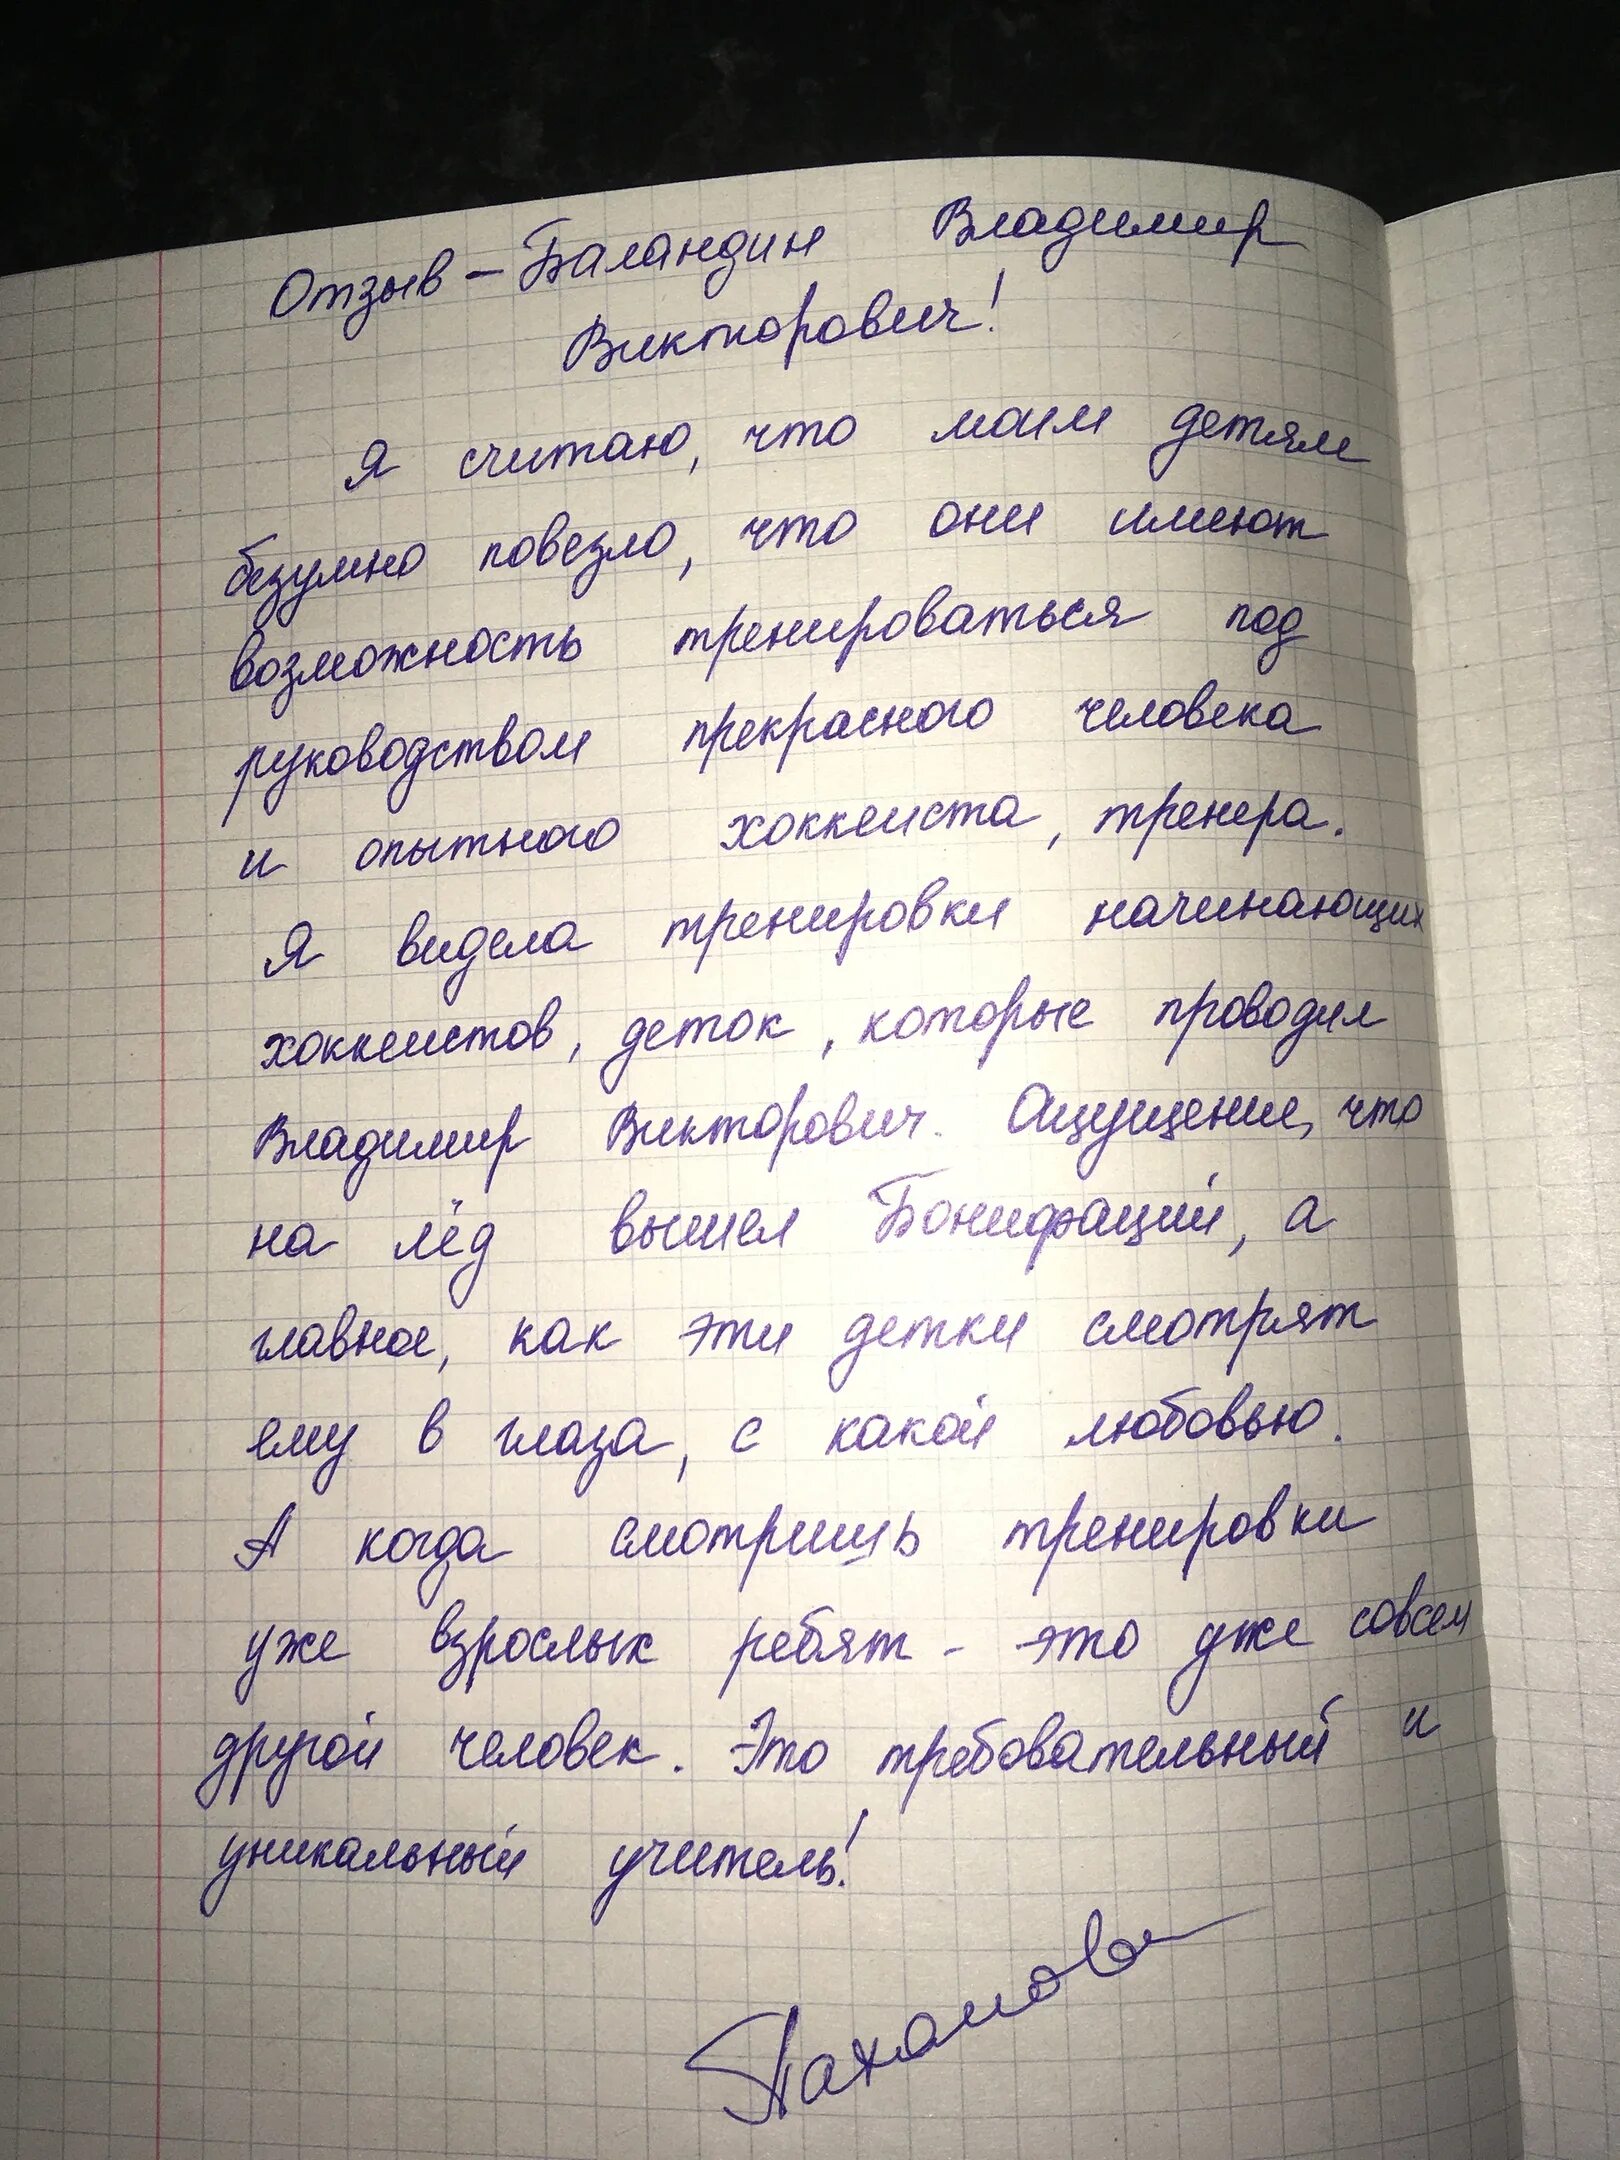 Отзыв - Баландин Владимир
Викторович!
Я считаю, что моим детям
безумно повезло, что они имеют
возможность тренироваться под
руководством прекрасного человека
и опытного хоккеиста, тренера.
Я видела тренировки начинающих
хоккеистов, деток, которые проводил
Владимир Викторович. Ощущение, что
на лёд вышел Бонифаций, а
главное, как эти детки смотрят
ему в глаза, с какой любовью.
А когда смотришь тренировки
уже взрослых ребят - это уже совсем
другой человек. Это требовательный и
уникальный учитель!